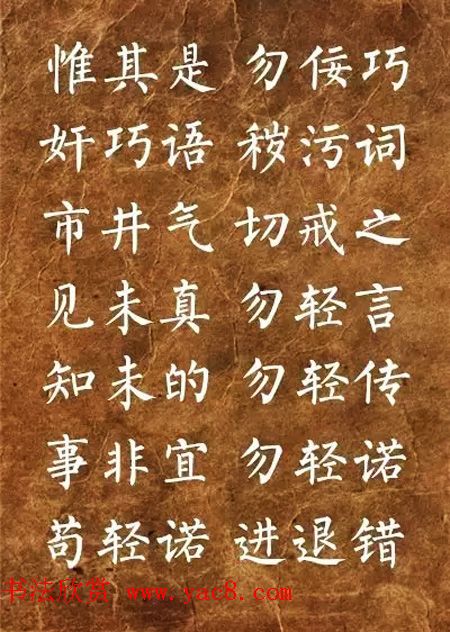 惟其是 勿佞巧
奸巧语 秽污词
市井气 切戒之
见未真 勿轻言
知未的 勿轻传
事非宜 勿轻诺
苟轻诺 进退错
书法欣赏 www.yac8.com